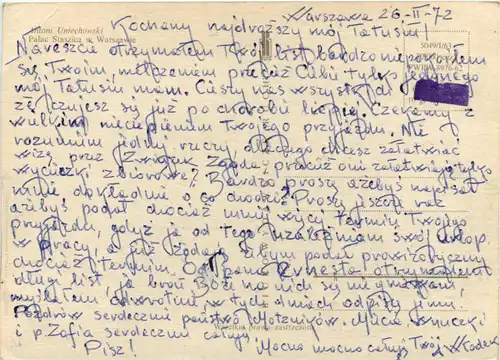 Antoni Uniechowski
Pałac Staszica w Warszawie
Warszawa 26-II-72
Kochany najdroższy mój Tatusiu!
Nareszcie otrzymałem Twój list bardzo niepokoiłem
się Twoim milczeniem przecież Ciebie tylko jednego
mój Tatusiu mam. Cieszy nas wszystkich
że czujesz się już po chorobie lepiej. Czekamy z
wielkim niecierpieniem Twojego przyjazdu. Nie
rozumiem jednej rzeczy, dlaczego chcesz załatwiać
wizę przez Związek Zgoda, przecież oni załatwiają tylko
wycieczki zbiorowe? Bardzo proszę ażebyś napisał
mnie dokładnie o co chodzi? Proszę jeszcze raz
ażebyś podał chociaż mniej więcej termin Twojego
przyjazdu, gdyż ja od tego uzależniam swój urlop
w pracy, a już żądają abym podał prowizoryczny
chociaż termin. Od pana Ernesta otrzymałem
długi list, ja broń Boże na nich się nie gniewam
myślałem odwrotnie, w tych dniach odpiszę jemu.
Pozdrów serdecznie państwo Motzników. Macie, wnuczki
i p. Zofia serdecznie całują.
Wszelkie prawa zastrzeżone
Pisz!
Mocno mocno całuję Twój Włodek